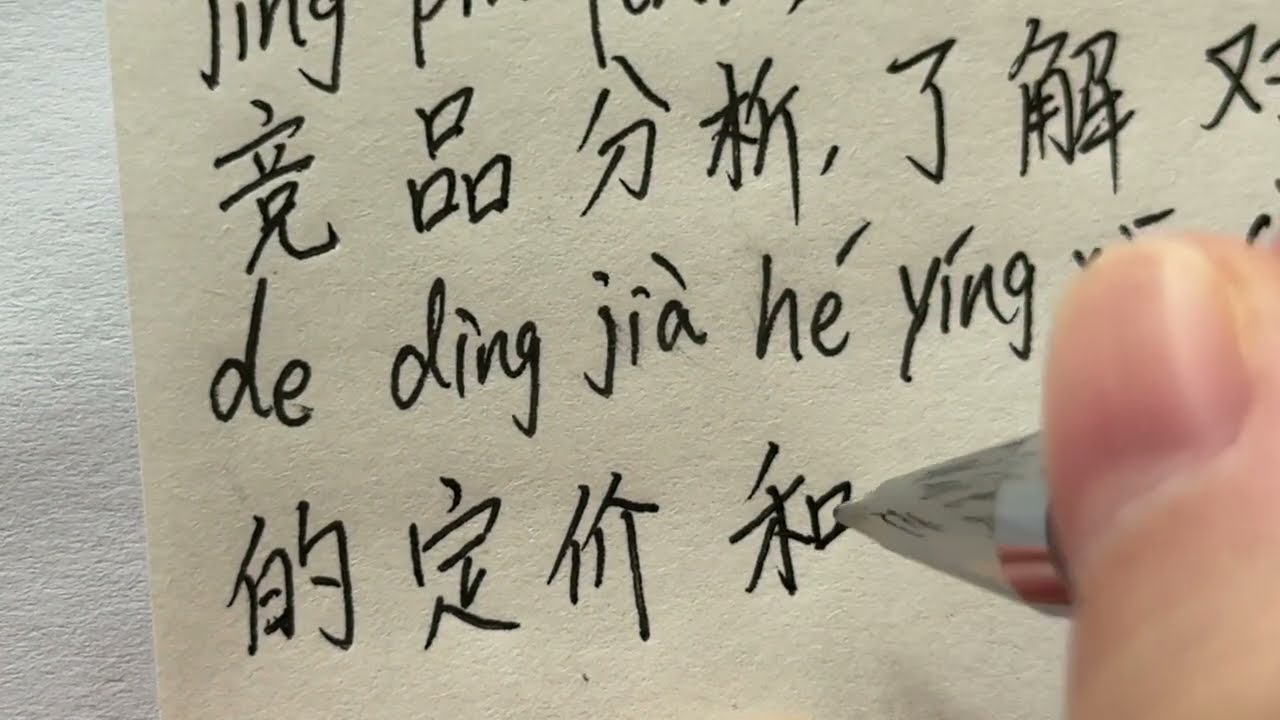 jīng pǐn
竞品分析,了解对
de dìng jià hé yíng
的定价和